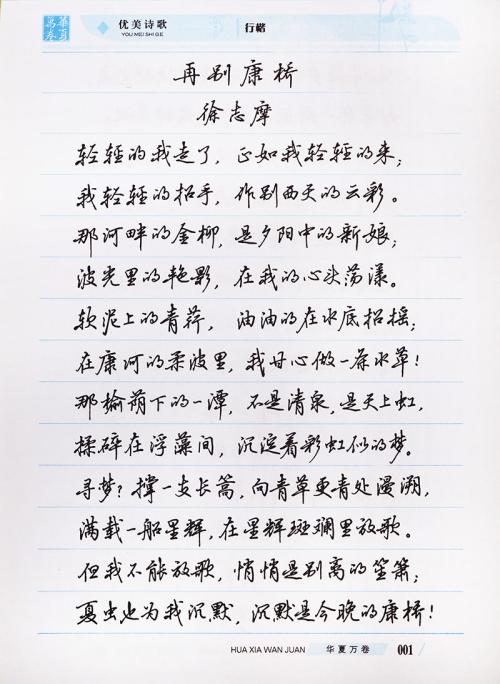 华夏万卷
优美诗歌
YOU MEI SHI GE
行楷
再别康桥
徐志摩
轻轻的我走了，正如我轻轻的来；
我轻轻的招手，作别西天的云彩。
那河畔的金柳，是夕阳中的新娘；
波光里的艳影，在我的心头荡漾。
软泥上的青荇，油油的在水底招摇；
在康河的柔波里，我甘心做一条水草！
那榆荫下的一潭，不是清泉，是天上虹，
揉碎在浮藻间，沉淀着彩虹似的梦。
寻梦？撑一支长篙，向青草更青处漫溯，
满载一船星辉，在星辉斑斓里放歌。
但我不能放歌，悄悄是别离的笙箫；
夏虫也为我沉默，沉默是今晚的康桥！
HUA XIA WAN JUAN
华夏万卷
001